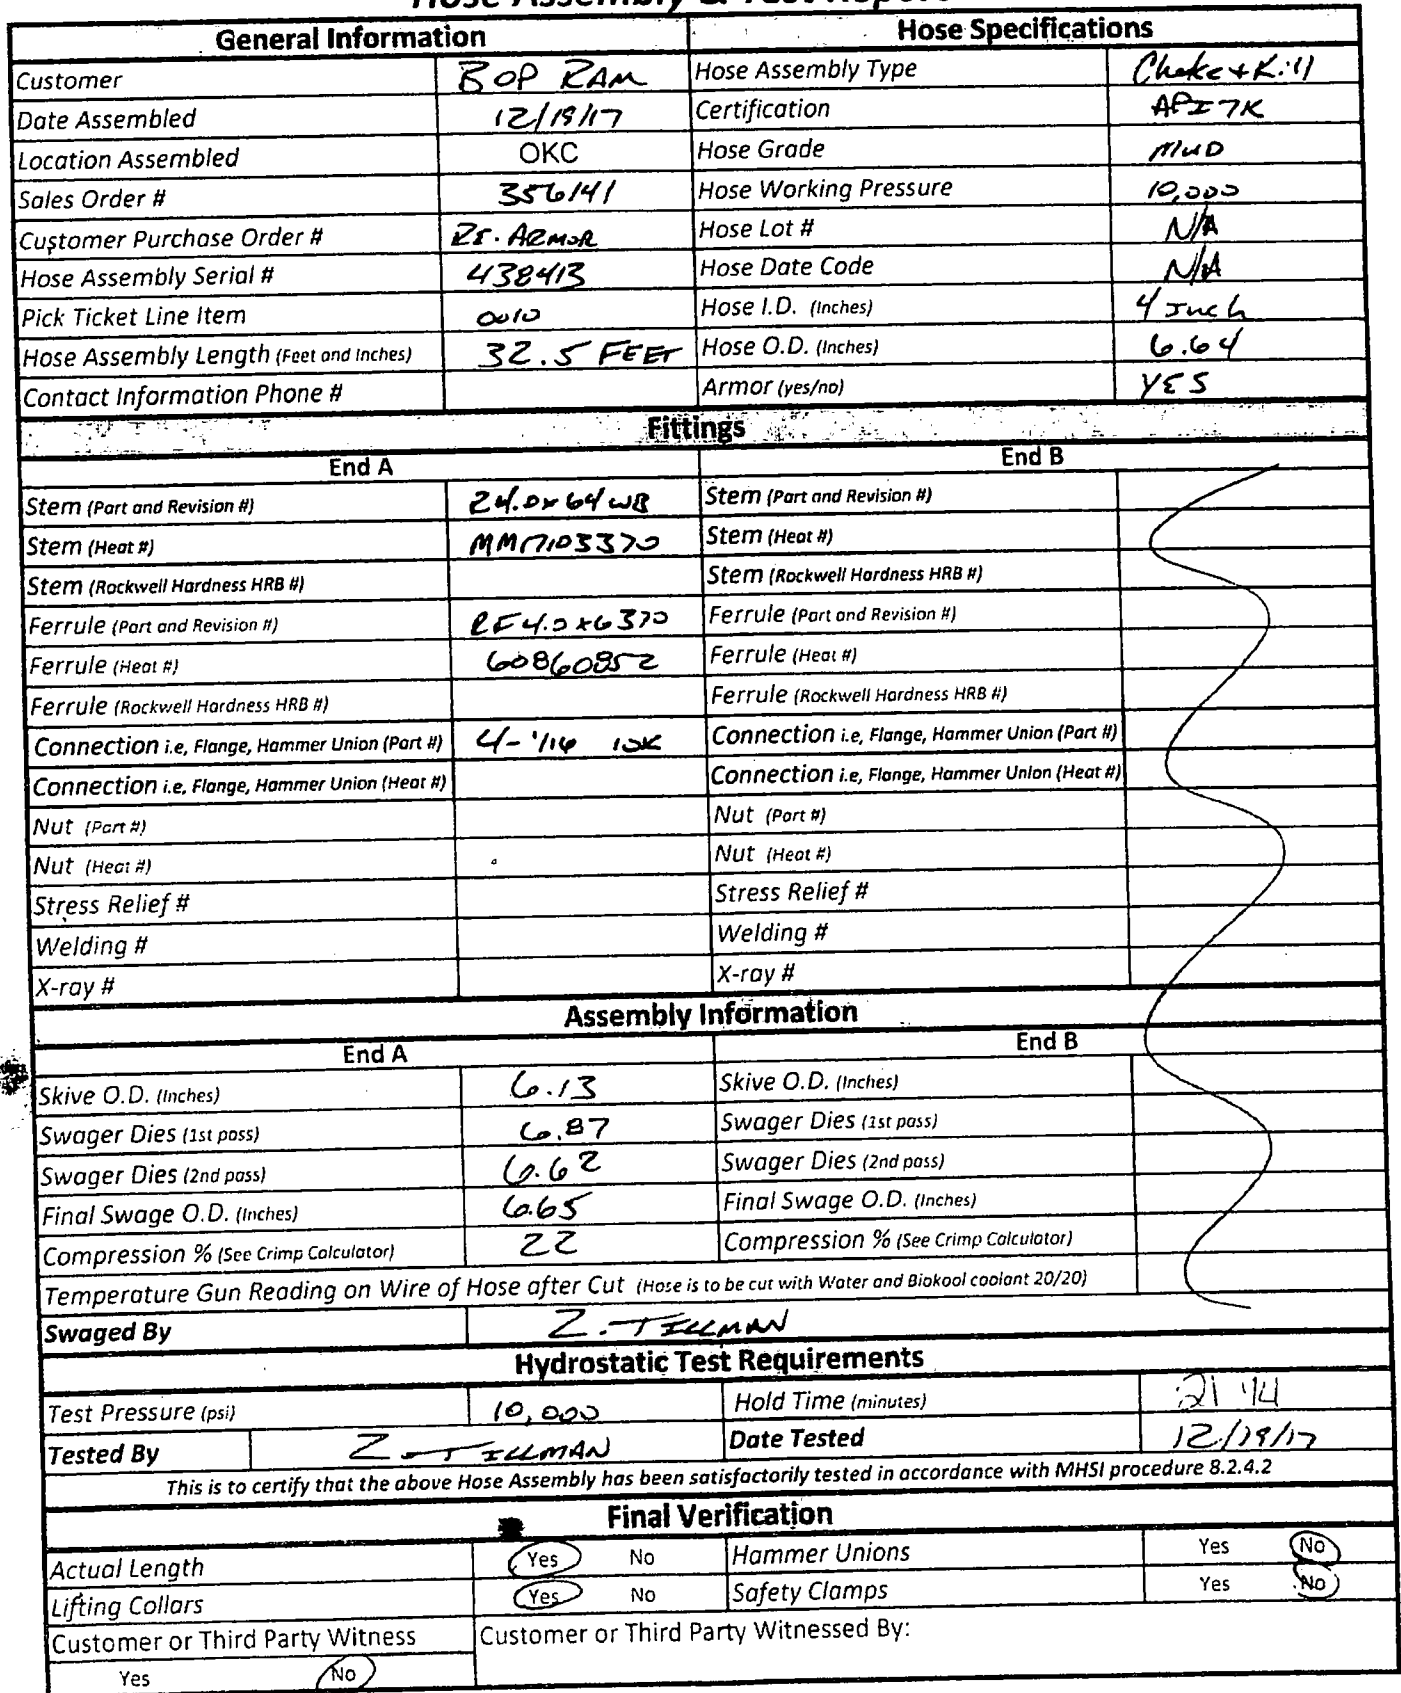 Hose Assembly & Test Report
General Information Hose Specifications
Customer BOP RAM Hose Assembly Type Choke + Kill
Date Assembled 12/19/17 Certification API 7K
Location Assembled OKC Hose Grade MUD
Sales Order # 356141 Hose Working Pressure 10,000
Customer Purchase Order # RE-ARMOR Hose Lot # N/A
Hose Assembly Serial # 438413 Hose Date Code N/A
Pick Ticket Line Item 0010 Hose I.D. (Inches) 4 Inch
Hose Assembly Length (Feet and Inches) 32.5 FEET Hose O.D. (Inches) 6.64
Contact Information Phone # Armor (yes/no) YES
Fittings
End A End B
Stem (Part and Revision #) 24.0x64WB Stem (Part and Revision #)
Stem (Heat #) Stem (Heat #)
Stem (Rockwell Hardness HRB #) Stem (Rockwell Hardness HRB #)
Ferrule (Part and Revision #) RF4.0x6370 Ferrule (Part and Revision #)
Ferrule (Heat #) 60860852 Ferrule (Heat #)
Ferrule (Rockwell Hardness HRB #) Ferrule (Rockwell Hardness HRB #)
Connection i.e, Flange, Hammer Union (Part #) 4-1/16 10K Connection i.e, Flange, Hammer Union (Part #)
Connection i.e, Flange, Hammer Union (Heat #) Connection i.e, Flange, Hammer Union (Heat #)
Nut (Part #) Nut (Part #)
Nut (Heat #) Nut (Heat #)
Stress Relief # Stress Relief #
Welding # Welding #
X-ray # X-ray #
Assembly Information
End A End B
Skive O.D. (Inches) 6.13 Skive O.D. (Inches)
Swager Dies (1st pass) 6.87 Swager Dies (1st pass)
Swager Dies (2nd pass) 6.62 Swager Dies (2nd pass)
Final Swage O.D. (Inches) 6.65 Final Swage O.D. (Inches)
Compression % (See Crimp Calculator) 22 Compression % (See Crimp Calculator)
Temperature Gun Reading on Wire of Hose after Cut (Hose is to be cut with Water and Biokool coolant 20/20)
Swaged By Z. TILLMAN
Hydrostatic Test Requirements
Test Pressure (psi) 10,000 Hold Time (minutes)
Tested By Z. TILLMAN Date Tested 12/19/17
This is to certify that the above Hose Assembly has been satisfactorily tested in accordance with MHSI procedure 8.2.4.2
Final Verification
Actual Length Yes No Hammer Unions Yes No
Lifting Collars Yes No Safety Clamps Yes No
Customer or Third Party Witness Customer or Third Party Witnessed By:
Yes No